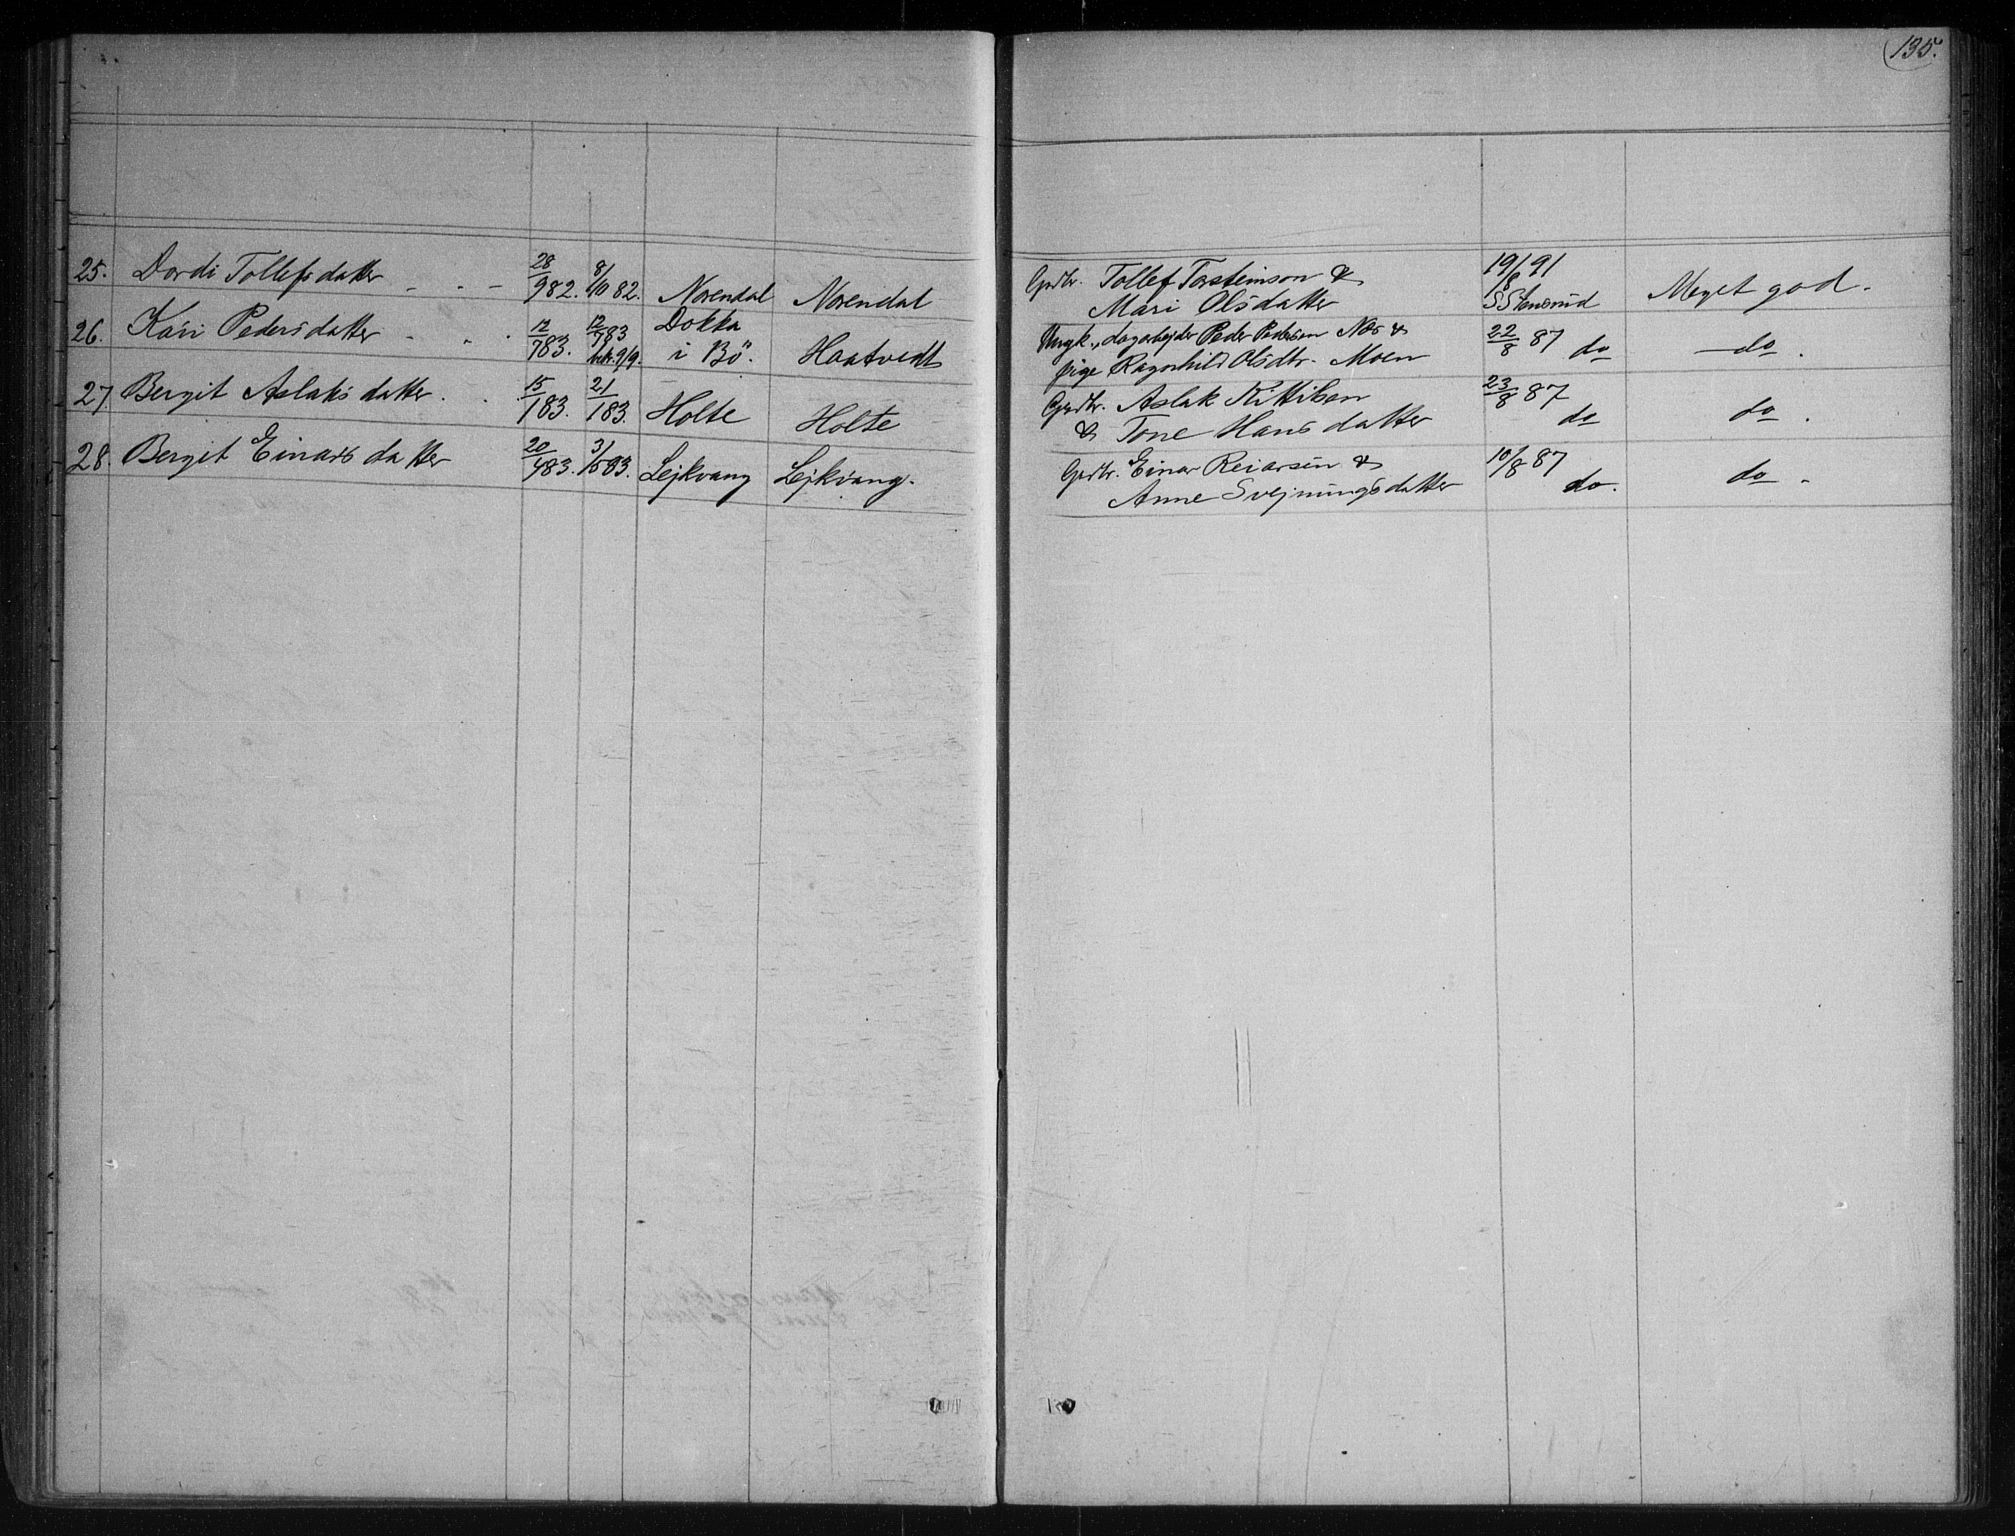 135.
25. Dordi Tollefsdatter 28/9 82. 8/10 82. Norendal Norendal Grdbr. Tollef Torsteinson & 19/8 91 Meget god.
Mari Olsdatter S Stensrud
26. Kari Pedersdatter 12/7 83. 12/7 83 Dokka Haatvedt Ungk., dagarbejder Peder Pedersen Næs & 22/8 87 do do.
9/9. i Bö. pige Ragnhild Olsdtr. Moen
27. Bergit Aslaksdatter. 15/1 83. 21/1 83. Holte Holte Grdbr. Aslak Kittilsen 23/8 87 do.
& Tone Hansdatter do
28. Bergit Einarsdatter 20/4 83. 3/5 83. Lejkvang Lejkvang. Grdbr. Einar Reiarsen & 10/8 87 do.
Anne Svejnungsdatter do.